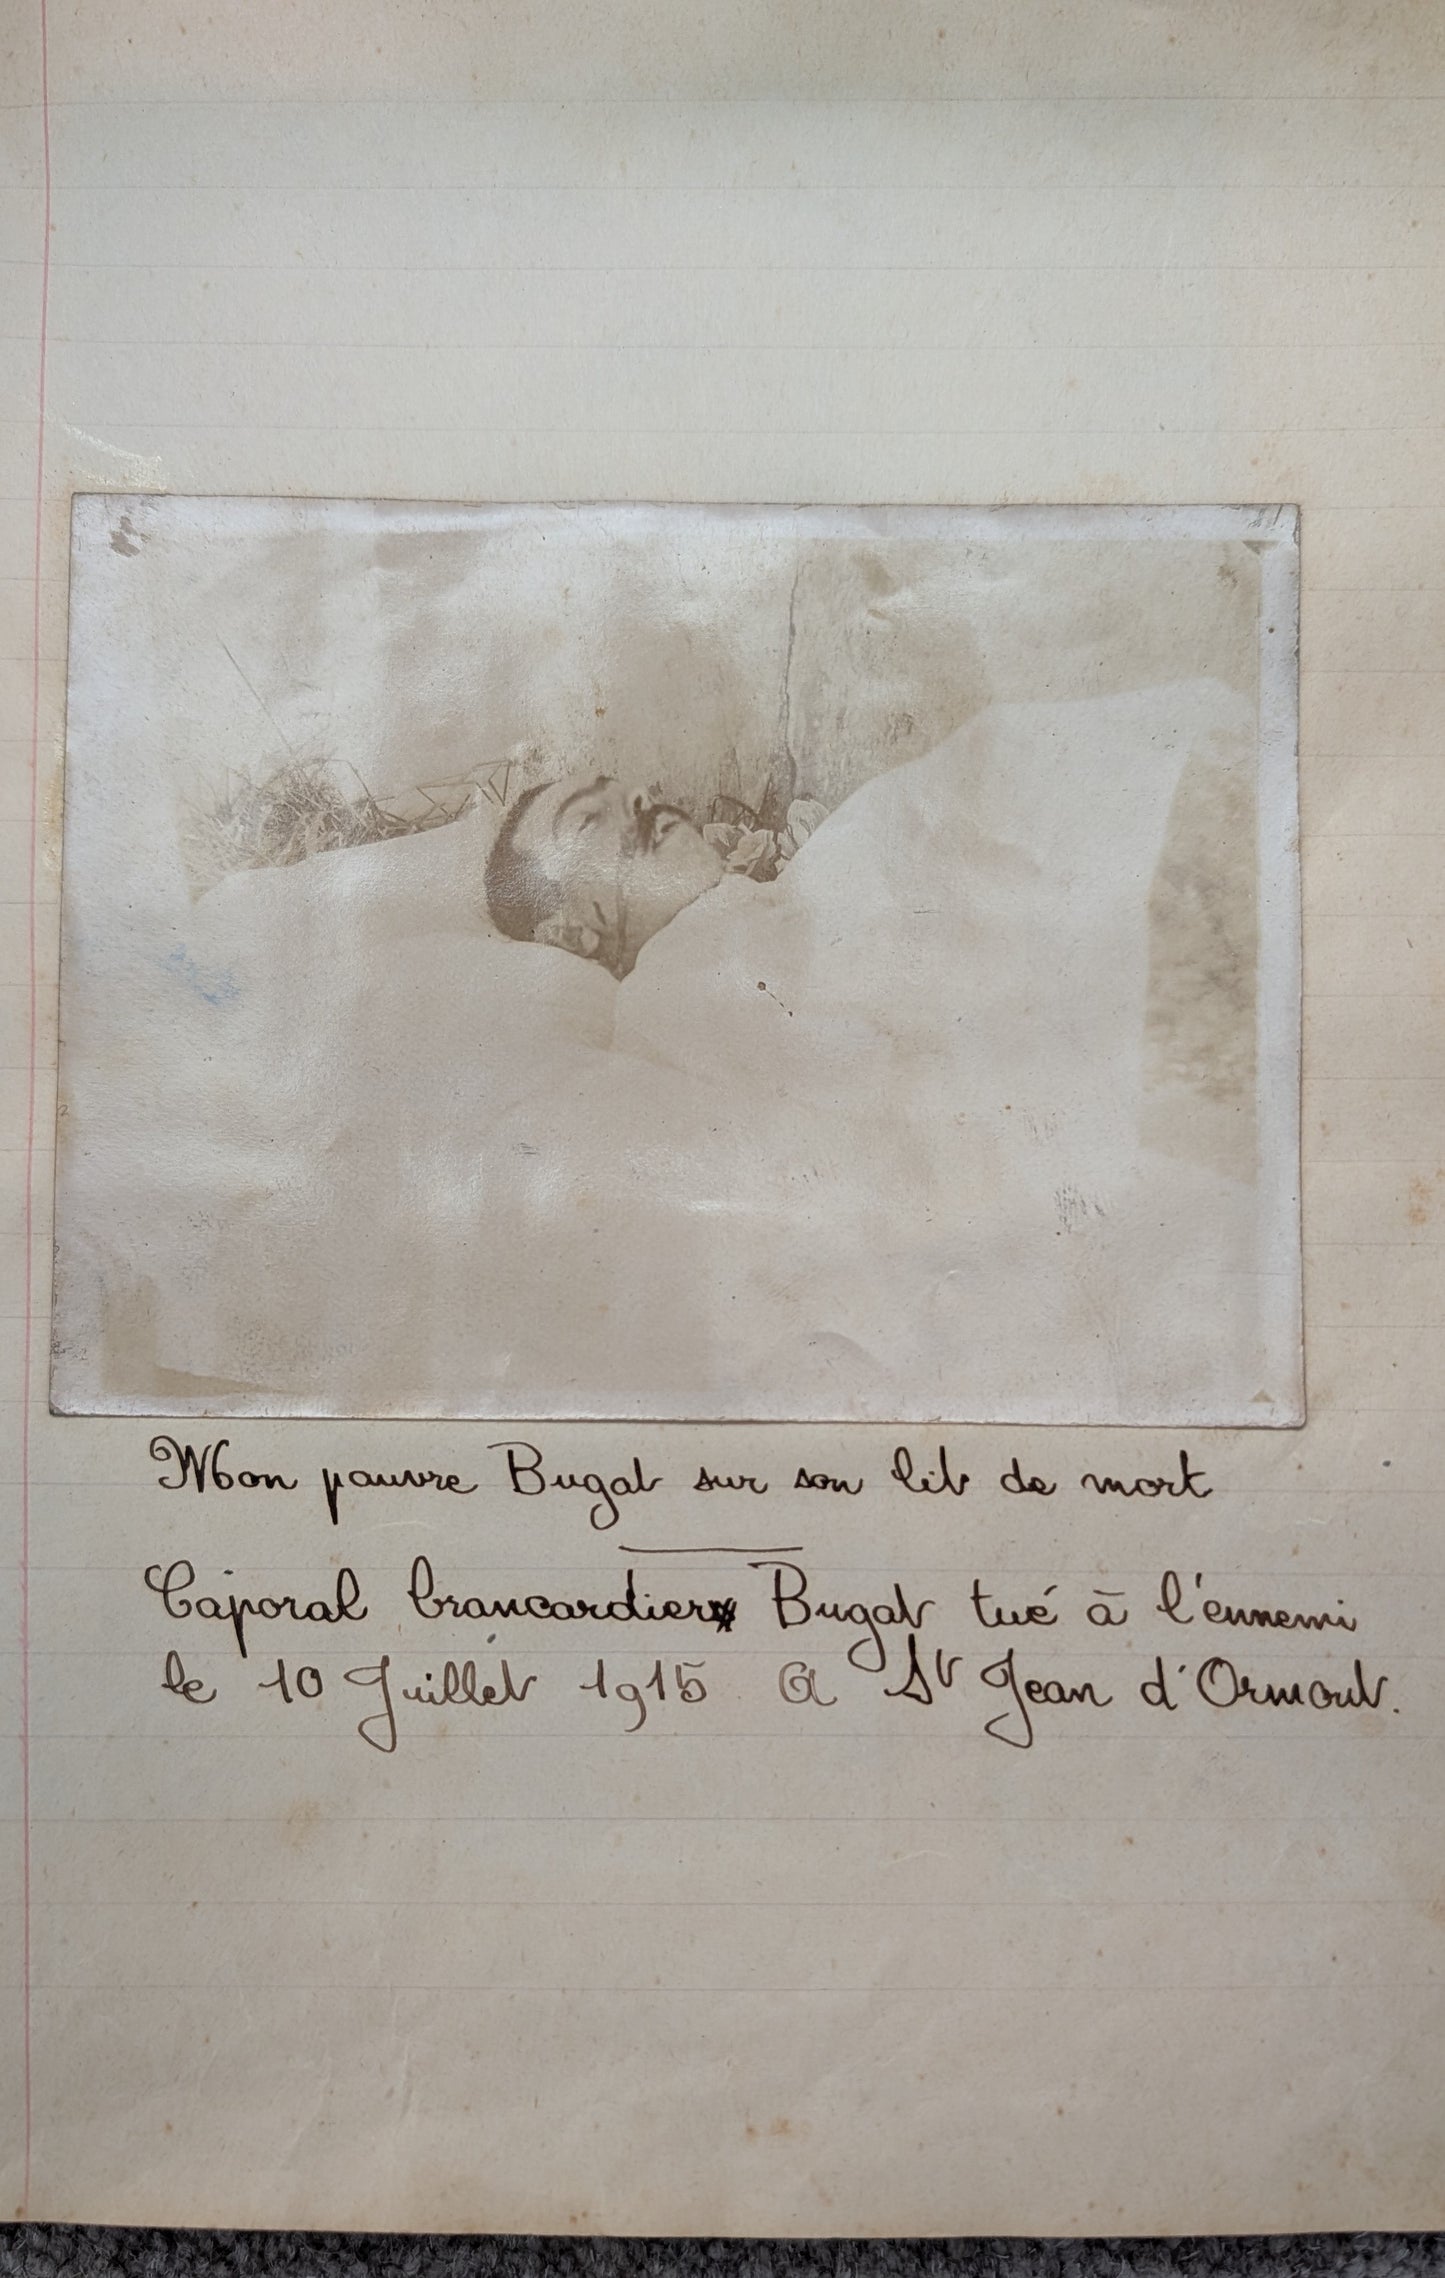 Mon pauvre Bugat sur son lit de mort
Caporal brancardier Bugat tué à l'ennemi
le 10 Juillet 1915 A St Jean d'Ormont.